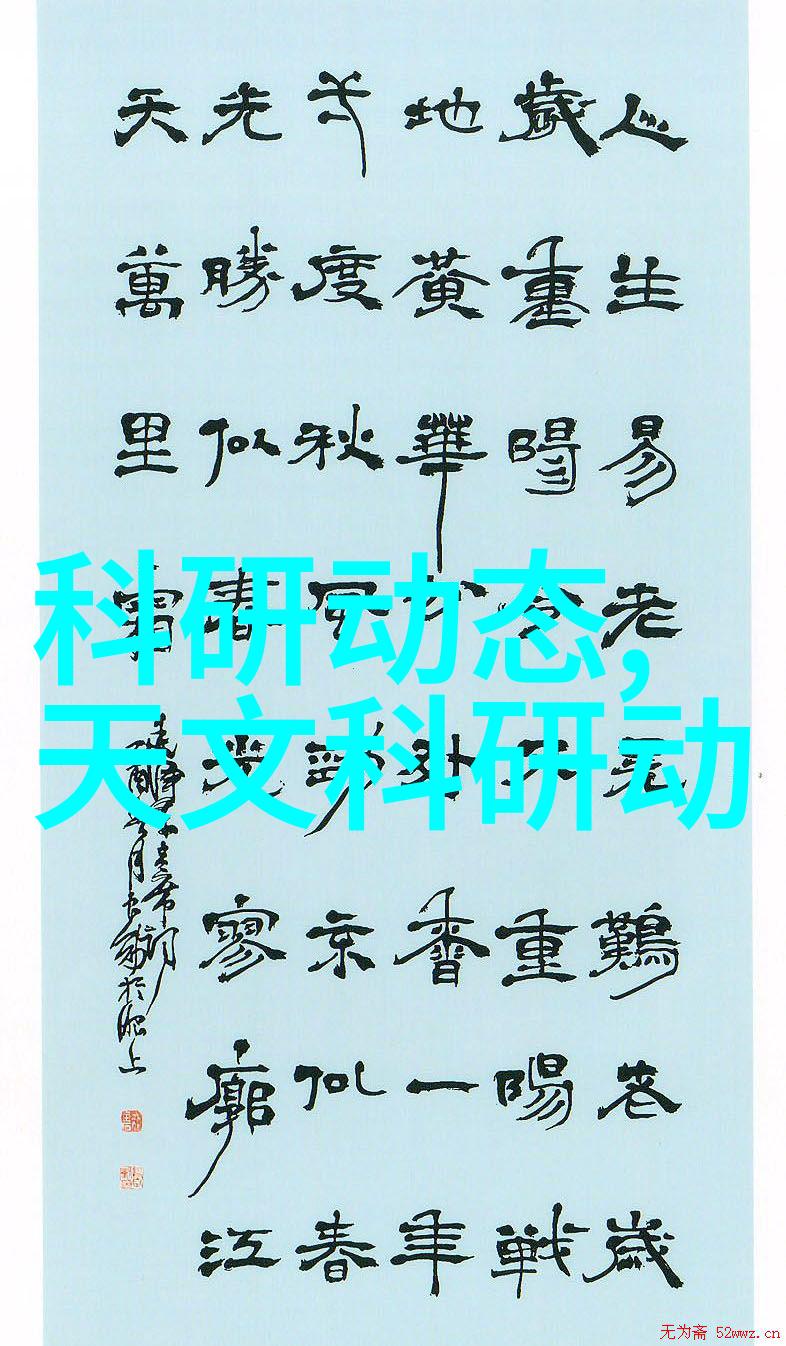 人生易老天難老歲
歲重陽今又重陽戰
地黃華分外香一年
度秋風勁似春
光勝似春光寥廓江
天萬里霜
科研动态,
天文科研动
无为斋 52wwz.cn